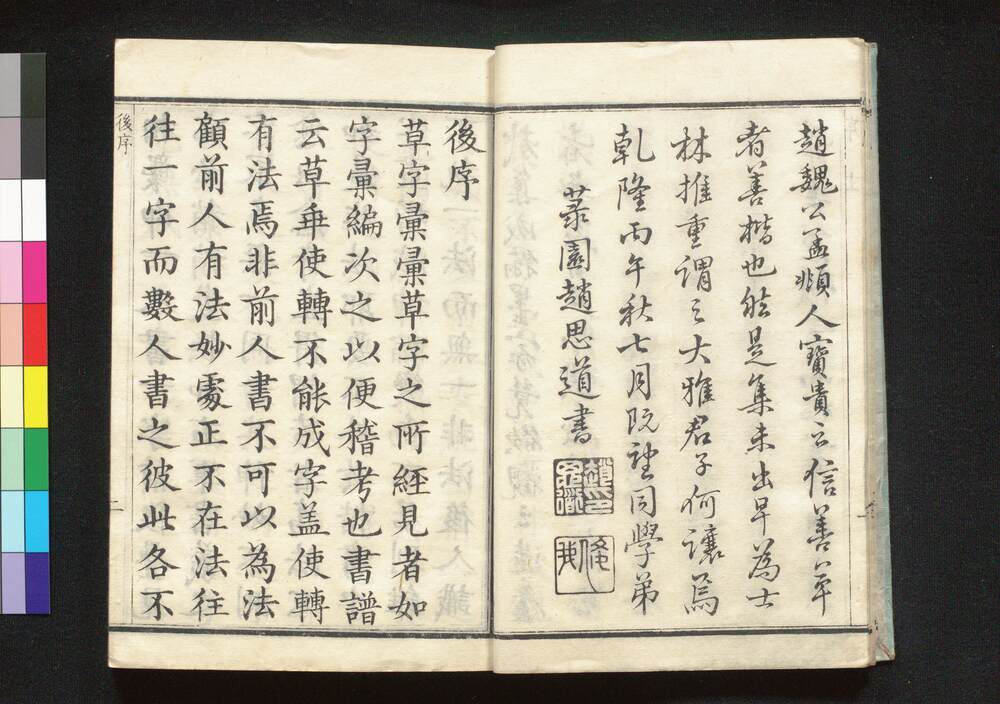 趙魏公孟頫人寶貴之信善草
者善楷也然是集未出早為士
林推重謂之大雅君子何讓焉
乾隆丙午秋七月既望同學弟
菉園趙思道書
後序
草字彙彙草字之所經見者如
字彙編次之以便稽考也書譜
云草乖使轉不能成字盖使轉
有法焉非前人書不可以為法
顧前人有法妙處正不在法往
往一字而數人書之彼此各不
後序
二